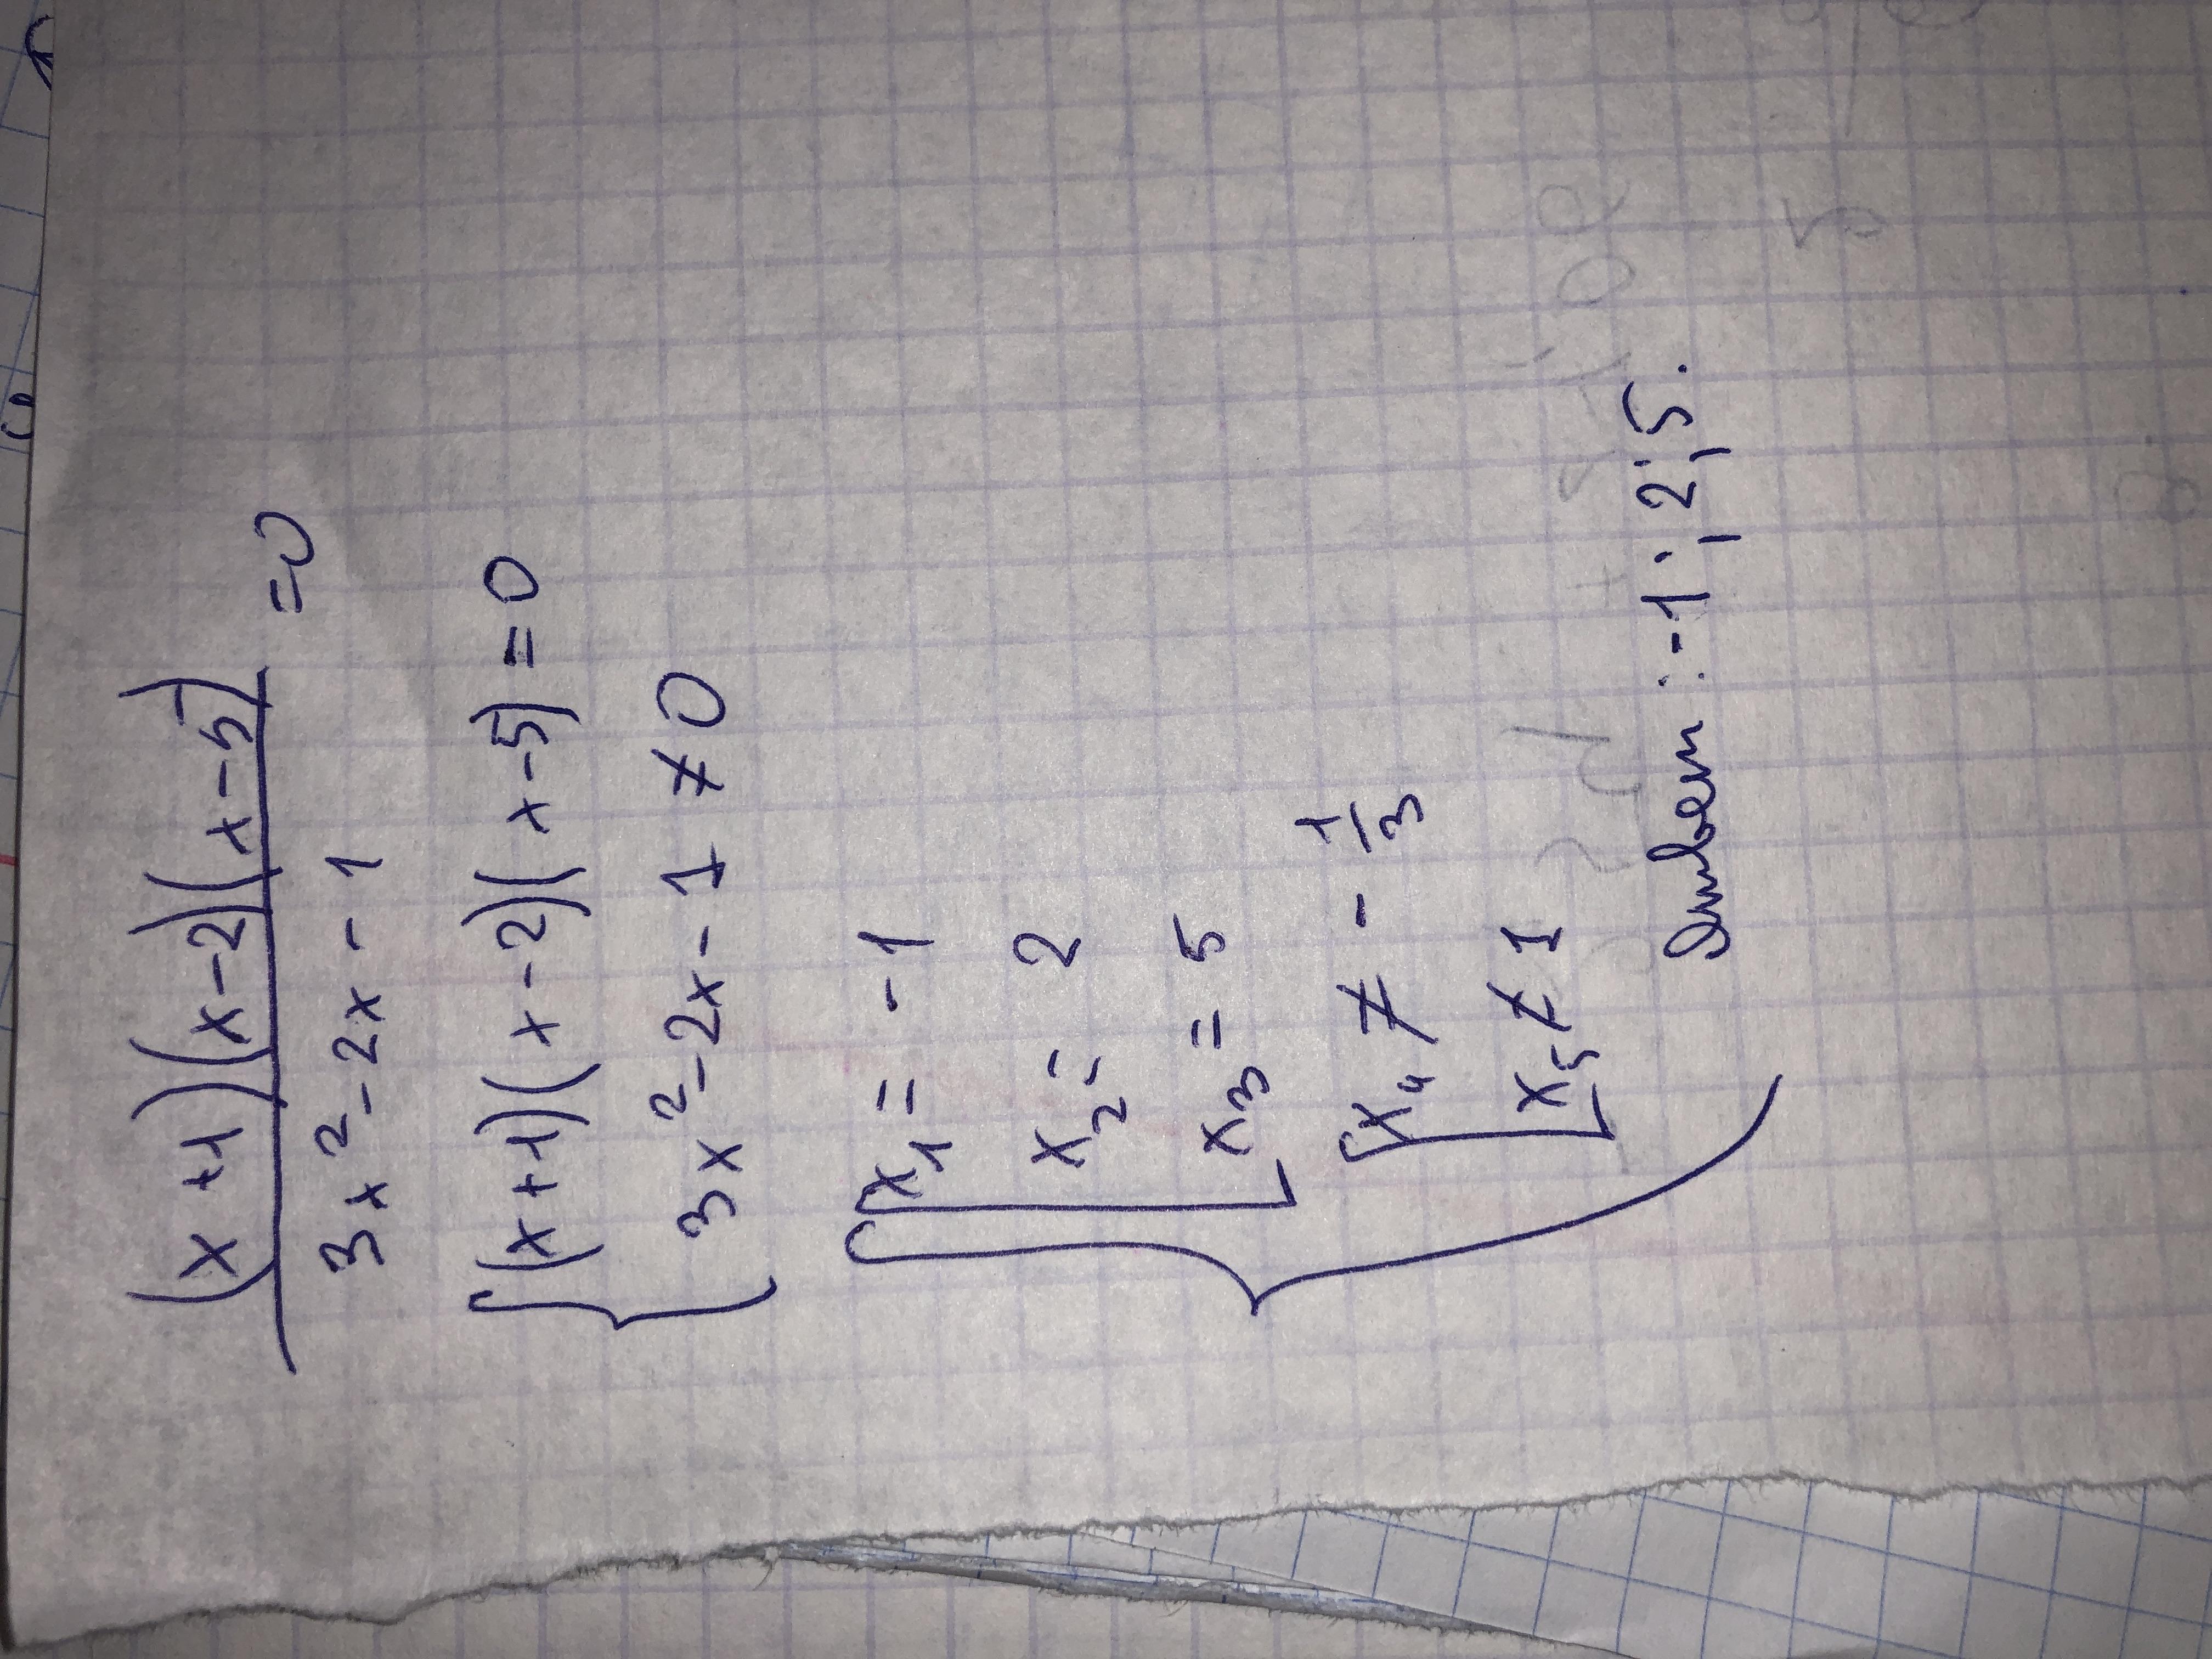 (x+1)(x-2)(x-5)
3x²-2x-1 =0
{(x+1)(x-2)(x-5)=0
3x²-2x-1≠0
{[x₁= -1
x₂= 2
x₃= 5
[x₄ ≠ -1/3
x₅ ≠ 1
Ответ: -1; 2; 5.